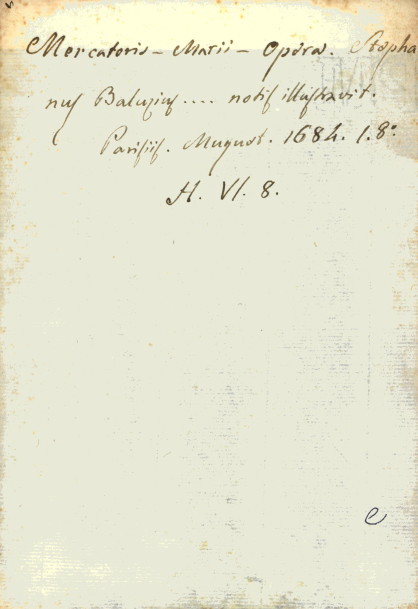 Mercatoris - Marii - Opera. Stepha
nus Baluzius.... notis illustravit.
Parisiis. Muguet. 1684. 1.8°
H. VI. 8.
e